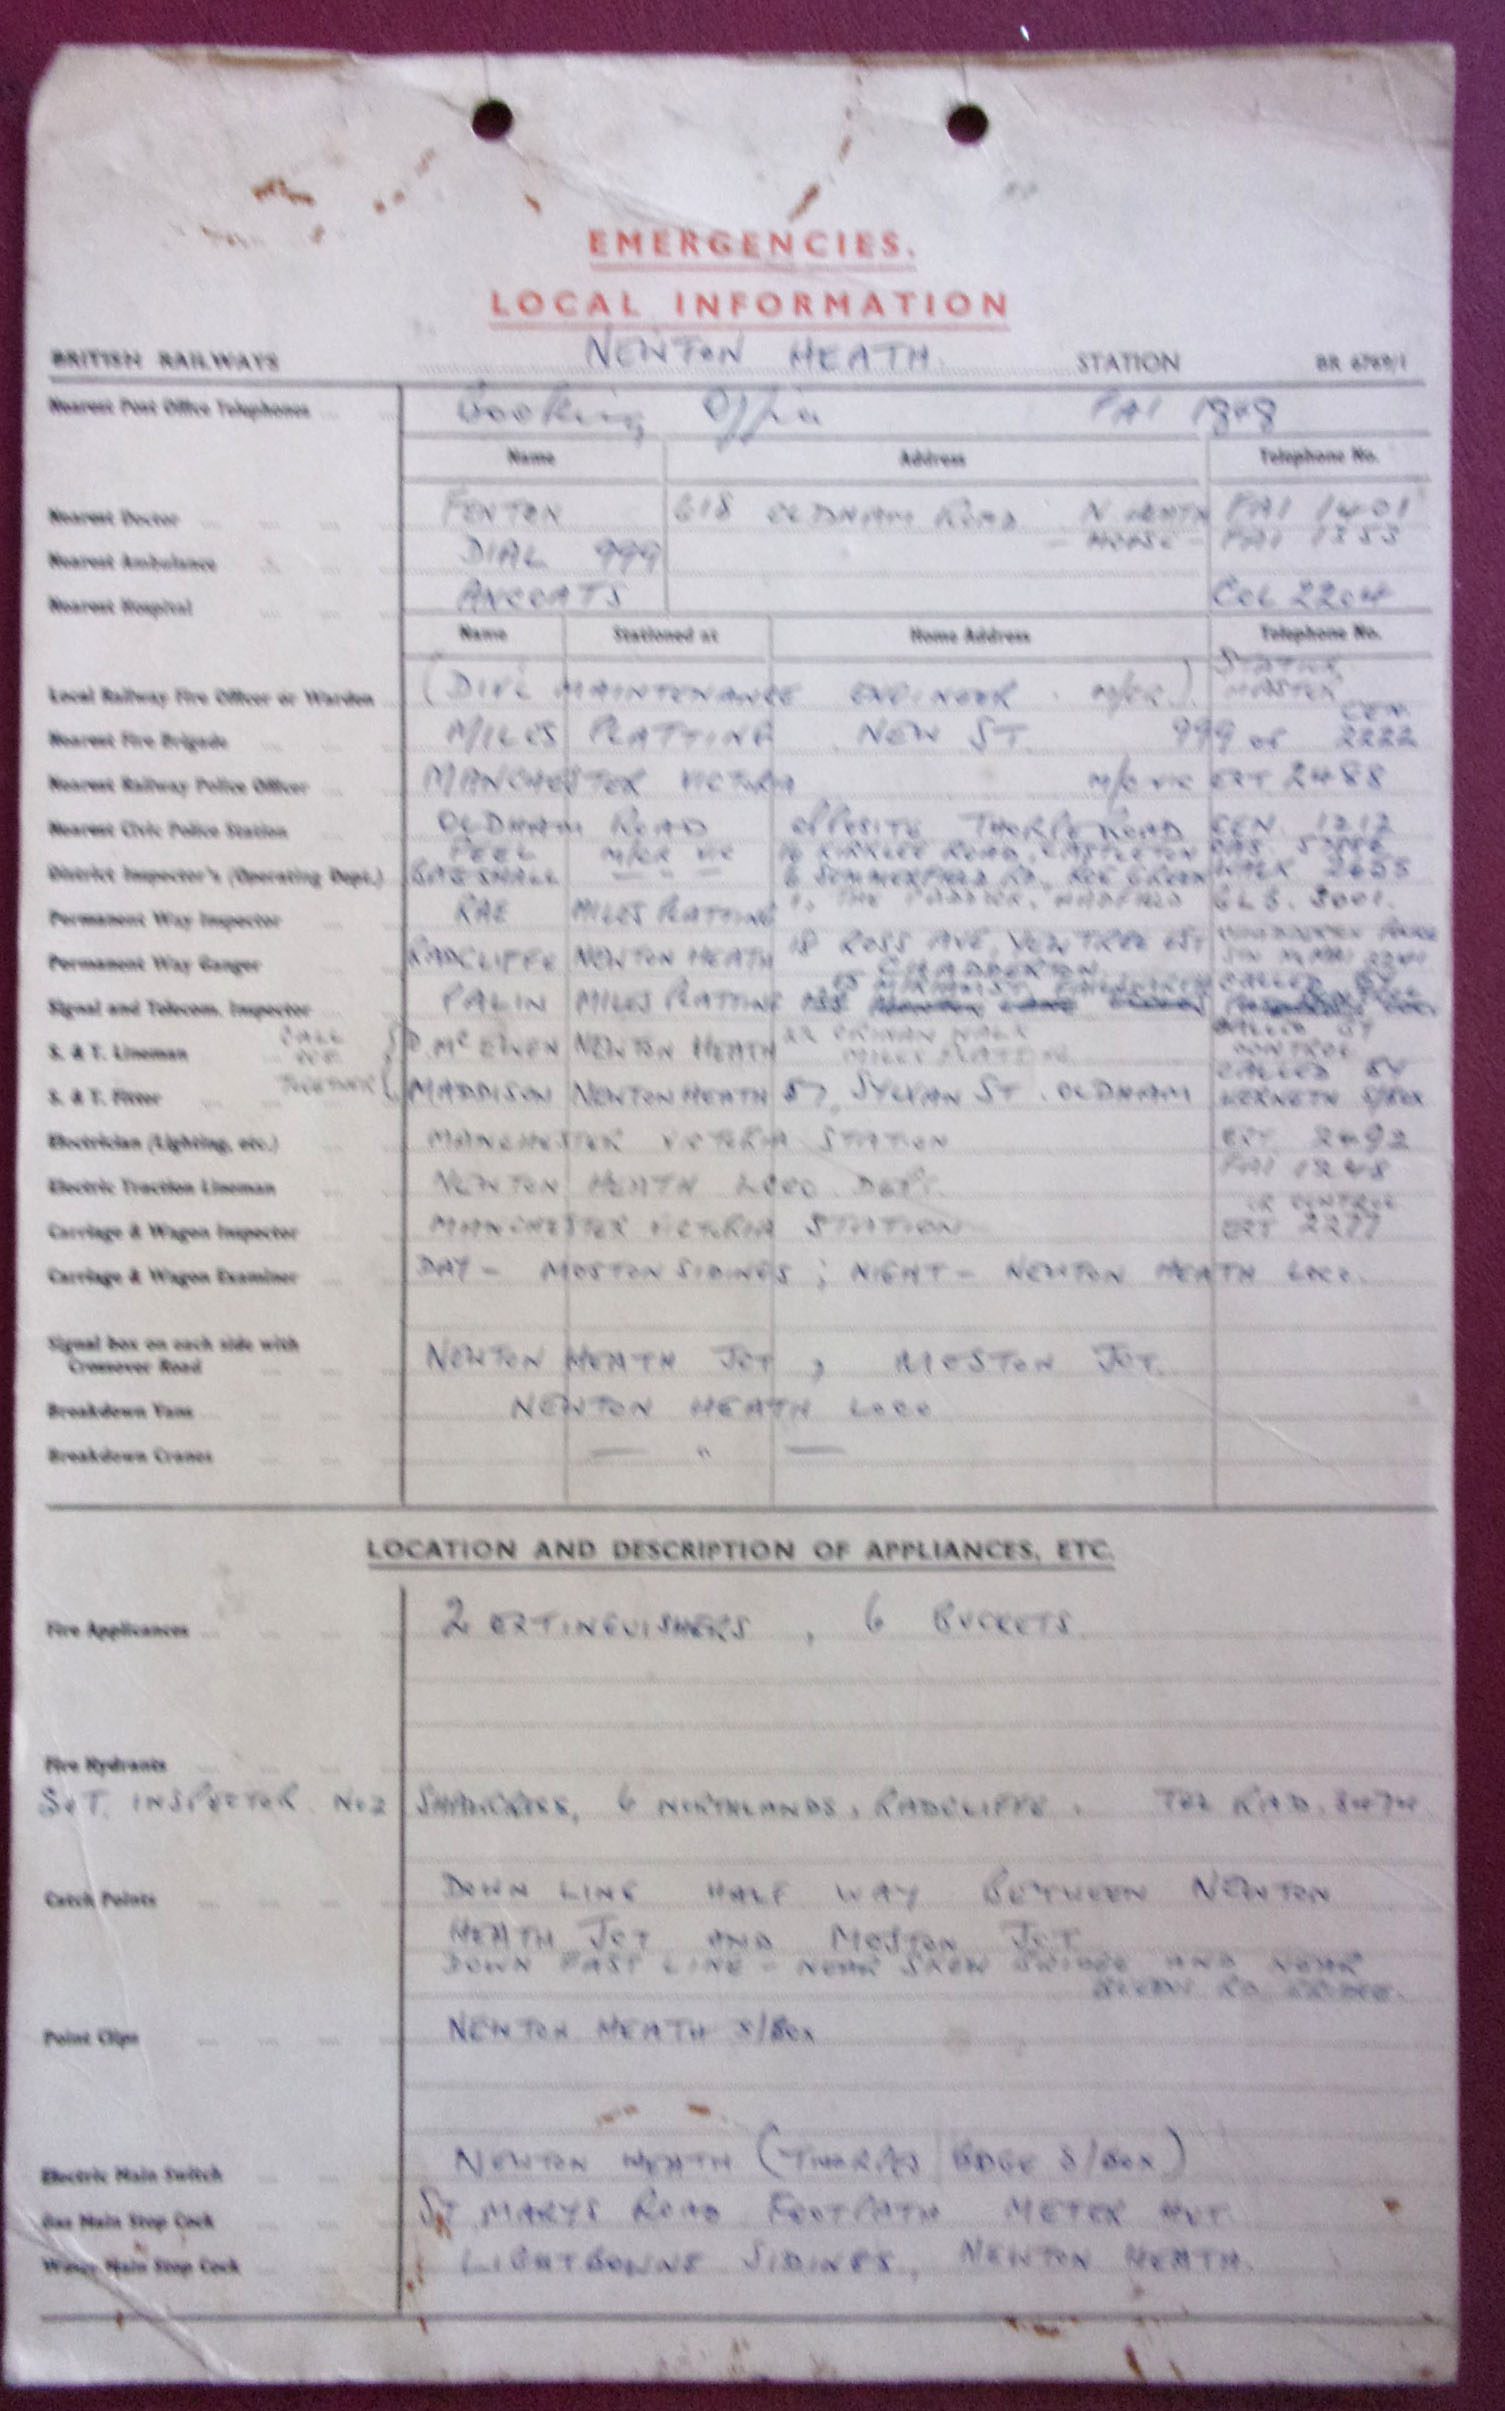 EMERGENCIES.
LOCAL INFORMATION
BRITISH RAILWAYS NEWTON HEATH. STATION BR 6769/1
Nearest Post Office Telephones Booking Office FAI 1848
Name Address Telephone No.
Nearest Doctor FENTON 618 OLDHAM ROAD N HEATH FAI 1401
- HOUSE - FAI 1353
Nearest Ambulance DIAL 999
Nearest Hospital ANCOATS COL 2204
Name Stationed at Home Address Telephone No.
Local Railway Fire Officer or Warden (DIV'L MAINTENANCE ENGINEER M/CR) STATION MASTER
Nearest Fire Brigade MILES PLATTING NEW ST. 999 or CEN. 2222
Nearest Railway Police Officer MANCHESTER VICTORIA M/C VIC EXT 2488
Nearest Civic Police Station OLDHAM ROAD OPPOSITE THORPE ROAD CEN. 1212
PEEL M/CR VIC 16 KIRKLEE ROAD, CASTLETON
District Inspector's (Operating Dept.) BAGSHALL — " — 6 SUMMERFIELD RD., ROE GREEN WALK 2655
Permanent Way Inspector RAE MILES PLATTING 1, THE PADDOCK, HADFIELD GLS. 3001.
Permanent Way Ganger RADCLIFFE NEWTON HEATH 18 ROSS AVE,
CHADDERTON
Signal and Telecom. Inspector PALIN MILES PLATTING FAILSWORTH
S. & T. Lineman CALL OUT D. McEWEN NEWTON HEATH 22 CRINAN WALK MILES PLATTING CALLED BY CONTROL
S. & T. Fitter TOGETHER MADDISON NEWTON HEATH 57, SYLVAN ST. OLDHAM CALLED BY WERNETH S/BOX
Electrician (Lighting, etc.) MANCHESTER VICTORIA STATION EXT 2492
Electric Traction Lineman NEWTON HEATH LOCO DEPT. FAI 1248
OR CONTROL
Carriage & Wagon Inspector MANCHESTER VICTORIA STATION EXT 2277
Carriage & Wagon Examiner DAY - MOSTON SIDINGS ; NIGHT - NEWTON HEATH LOCO.
Signal box on each side with
Crossover Road NEWTON HEATH JCT , MOSTON JCT.
Breakdown Vans NEWTON HEATH LOCO
Breakdown Cranes — " —
LOCATION AND DESCRIPTION OF APPLIANCES, ETC.
Fire Appliances 2 EXTINGUISHERS , 6 BUCKETS
Fire Hydrants
S&T. INSPECTOR No2 6 NORTHLANDS, RADCLIFFE. TEL RAD. 3474
Catch Points DOWN LINE HALF WAY BETWEEN NEWTON
HEATH JCT AND MOSTON JCT
DOWN FAST LINE - NEAR SKEW BRIDGE AND NEAR
RD BRIDGE.
Point Clips NEWTON HEATH S/BOX
Electric Main Switch NEWTON HEATH (THORPES BDGE S/BOX)
Gas Main Stop Cock ST MARYS ROAD FOOTPATH METER HUT.
Water Main Stop Cock LIGHTBOWNE SIDINGS, NEWTON HEATH.